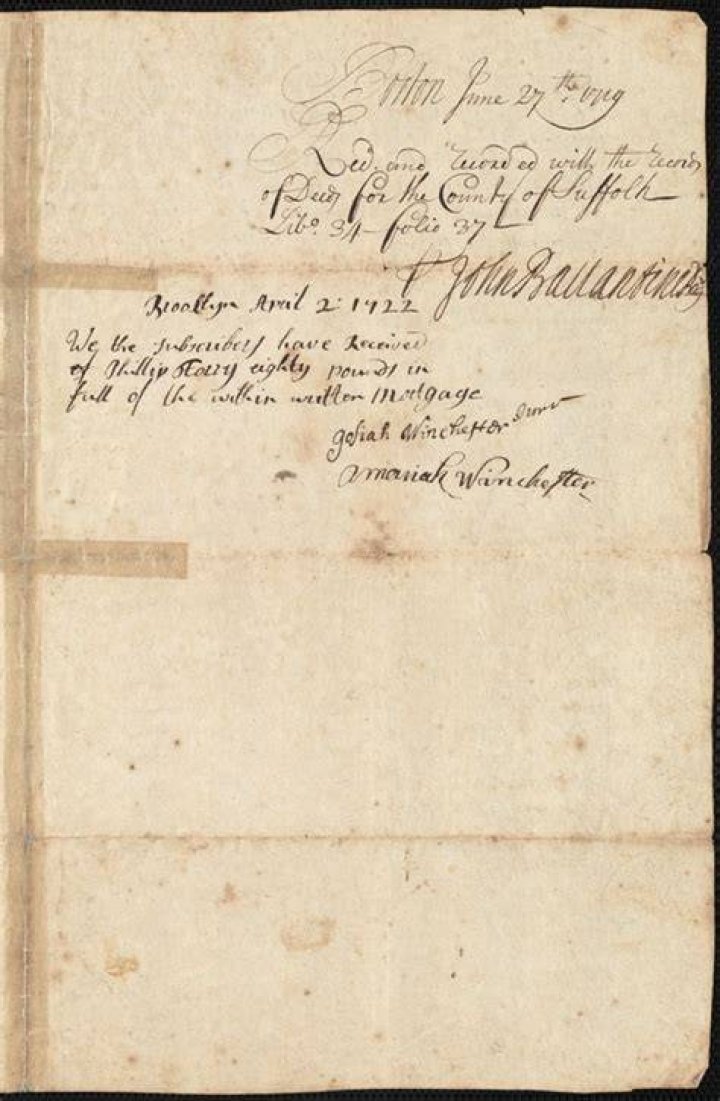 Boston June 27th. 1719
Recd. and Recorded with the Records
of Deeds for the County of Suffolk
Libo. 34 folio 37
John Ballantine
Brooklyn April 2: 1722
We the subscribers have Received
of Phillip eighty pounds in
full of the within written Mortgage
Josiah Winchester
Amariah Winchester